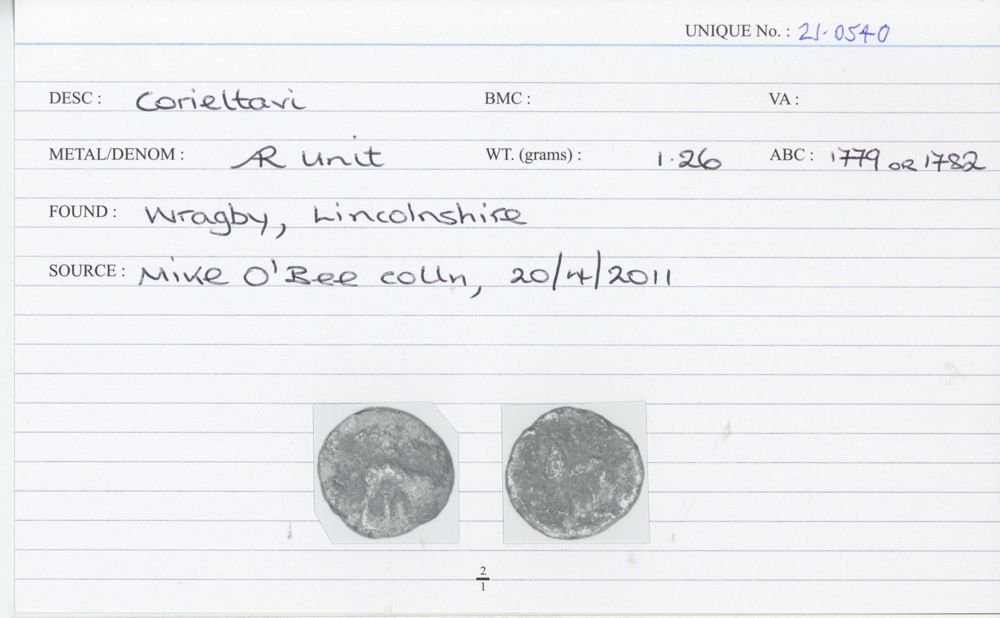 UNIQUE No. : 21.0540
DESC : Corieltavi BMC : VA :
METAL/DENOM : AR Unit WT. (grams) : 1.26 ABC : 1779 OR 1782
FOUND : Wragby, Lincolnshire
SOURCE : Mike O'Bee colln, 20/4/2011
2
1